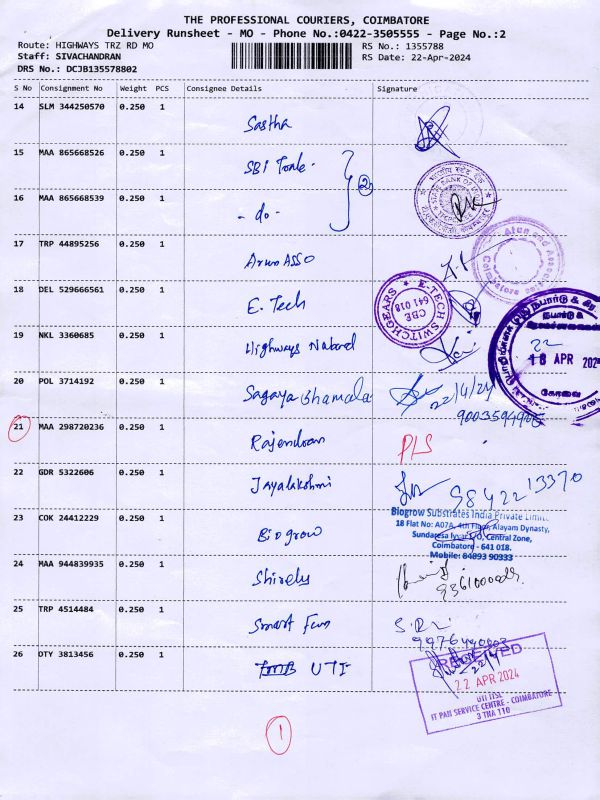 THE PROFESSIONAL COURIERS, COIMBATORE
Delivery Runsheet - MO - Phone No.:0422-3505555 - Page No.:2
Route: HIGHWAYS TRZ RD MO
RS No.: 1355788
Staff: SIVACHANDRAN
RS Date: 22-Apr-2024
DRS No.: DCJB135578802
S No Consignment No Weight PCS Consignee Details Signature
14 SLM 344250570 0.250 1 Sastha
15 MAA 865668526 0.250 1 SBI
16 MAA 865668539 0.250 1 - do - 2
17 TRP 44895256 0.250 1 Arun ASSO
18 DEL 529666561 0.250 1 E. Tech
E-TECH SWITCHGEARS
CBE
641 018
19 NKL 3360685 0.250 1 Highways
நபார்டு &
18 APR
கோவை
20 POL 3714192 0.250 1 Sagaya Shamala 22/4/24
21 MAA 298720236 0.250 1 Rajendran
22 GDR 5322606 0.250 1 Jayalakshmi 9842213370
23 COK 24412229 0.250 1 Biogrow
Biogrow Substrates India Private Limit
18 Flat No: A07A, 4th Floor, Alayam Dynasty,
Central Zone,
Coimbatore - 641 018.
Mobile: 84893 90333
24 MAA 944839935 0.250 1
25 TRP 4514484 0.250 1 Smart
26 DTY 3813456 0.250 1 UTI
RECEIVED
22 APR 2024
UTI ITSL
IT PAN SERVICE CENTRE - COIMBATORE
3 TNA 110
1